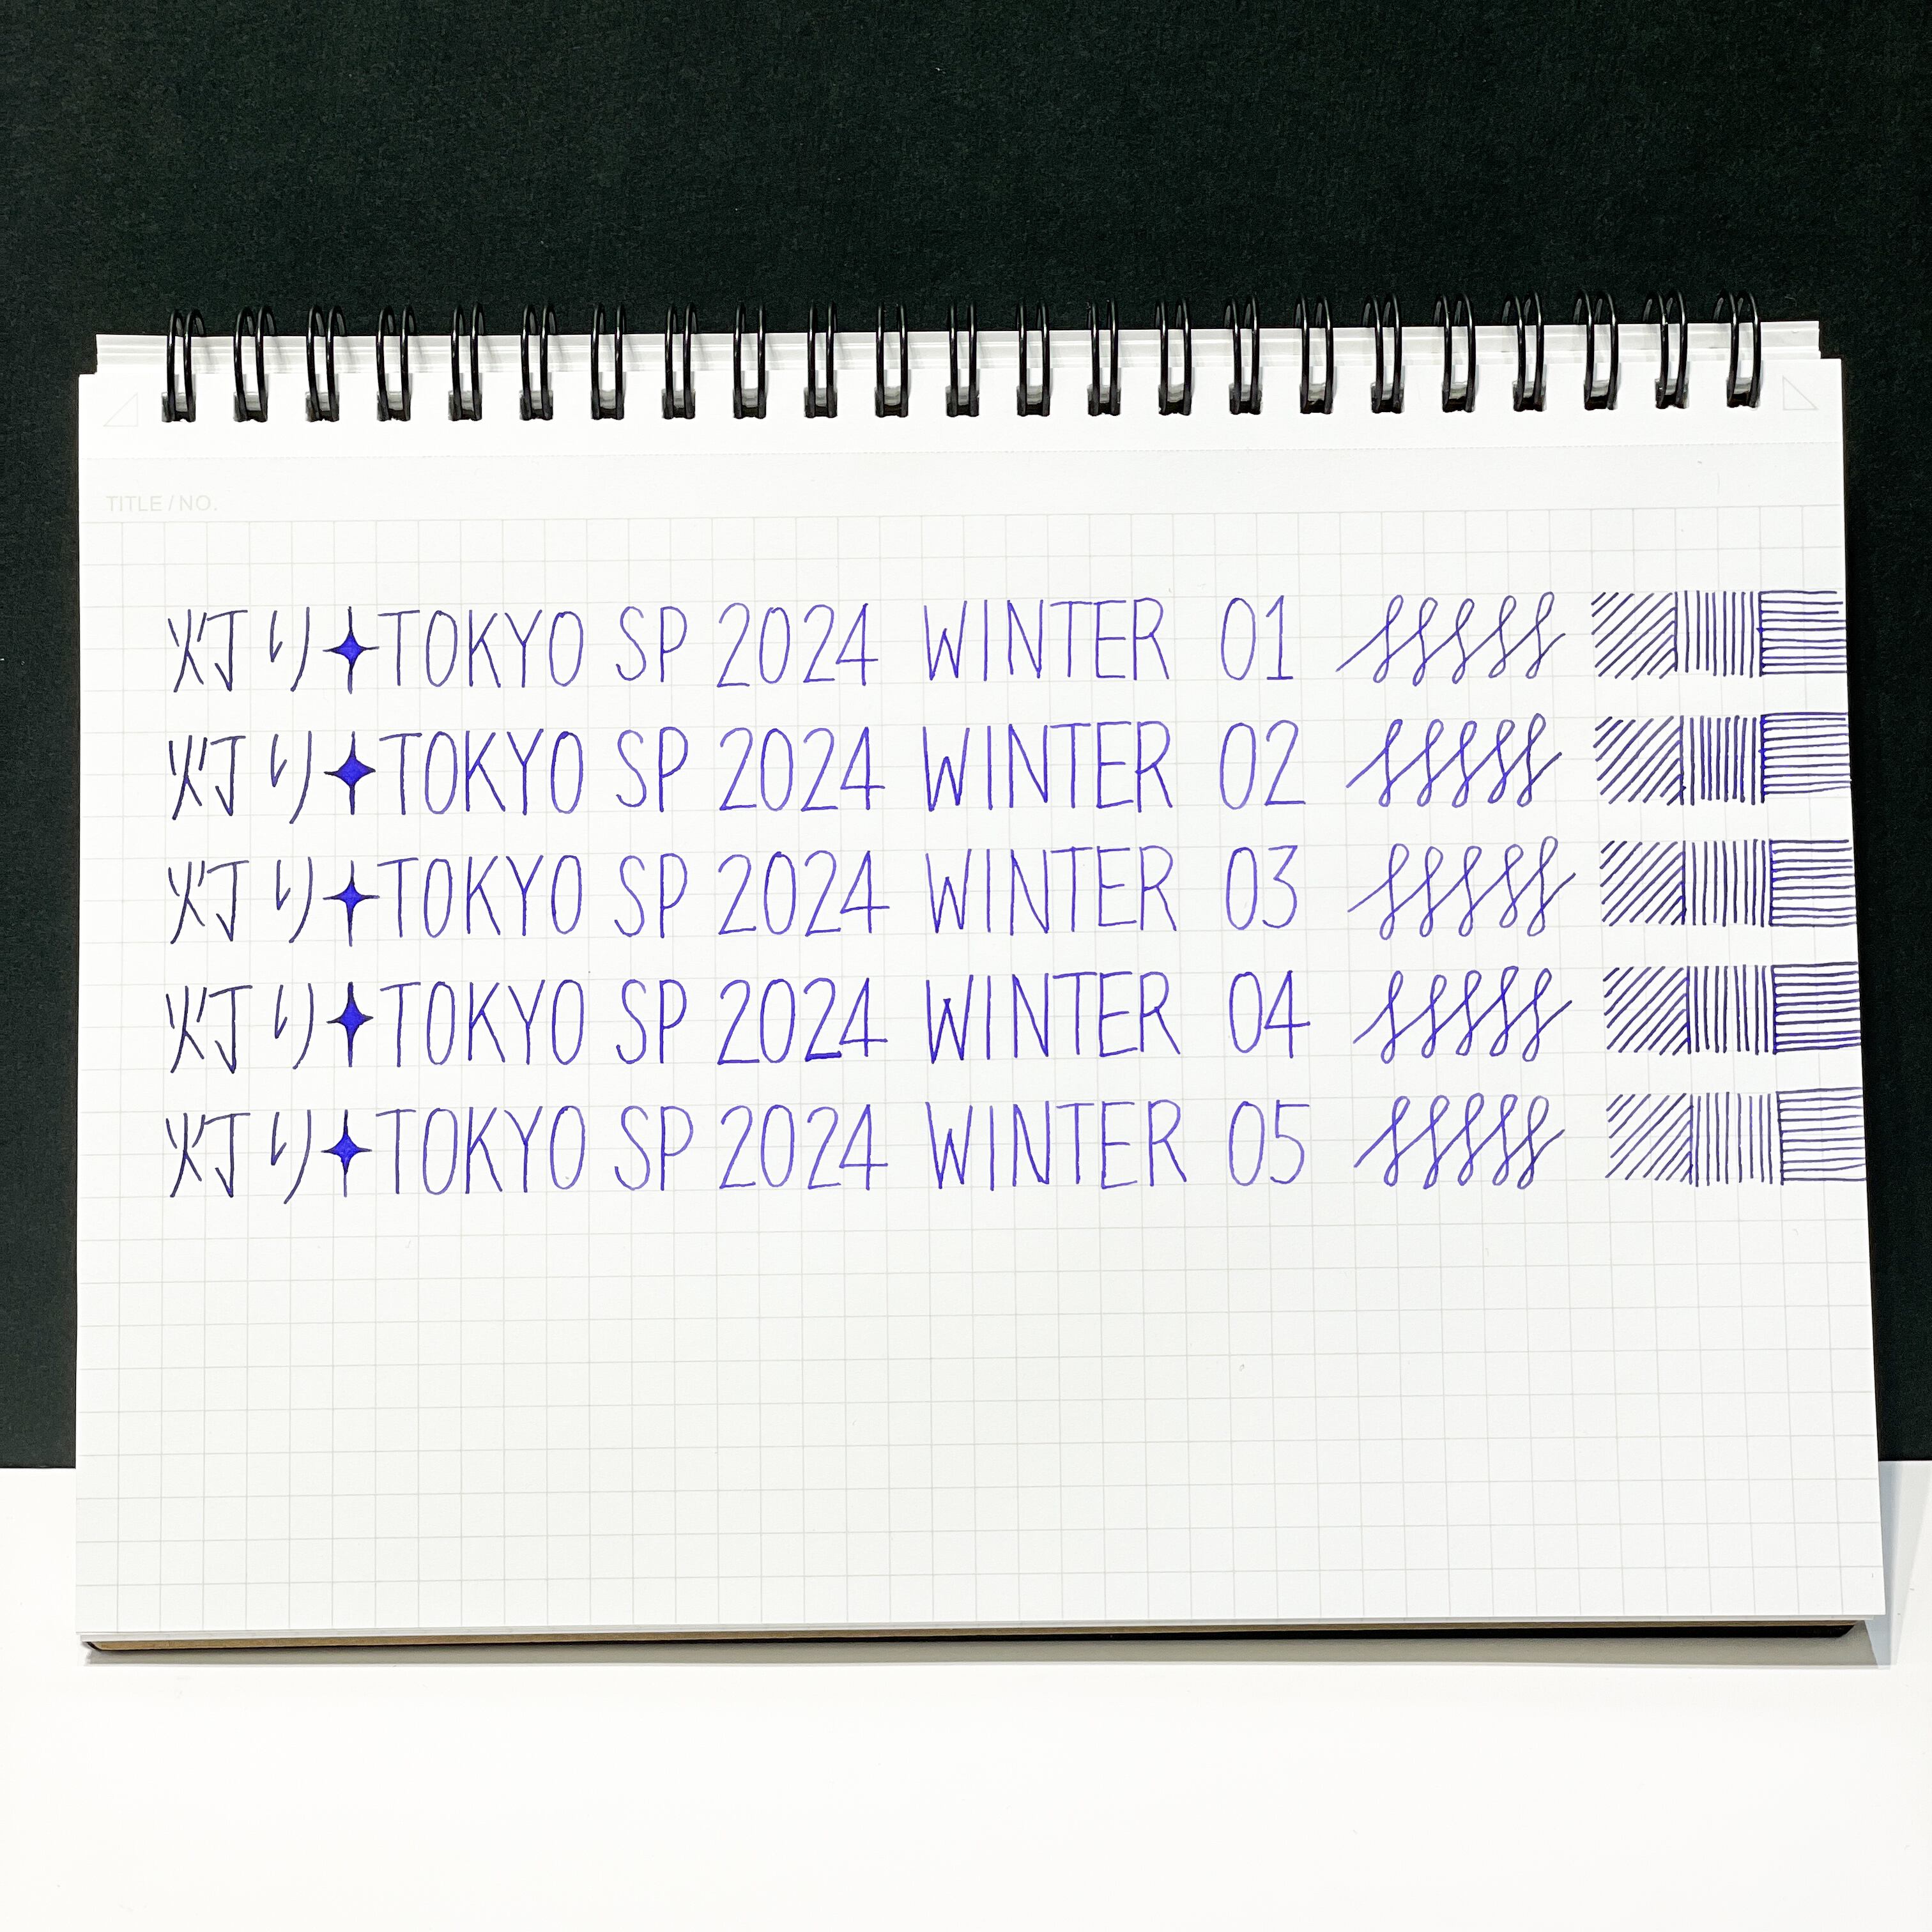 TITLE / NO.
灯り✦TOKYO SP 2024 WINTER 01
灯り✦TOKYO SP 2024 WINTER 02
灯り✦TOKYO SP 2024 WINTER 03
灯り✦TOKYO SP 2024 WINTER 04
灯り✦TOKYO SP 2024 WINTER 05